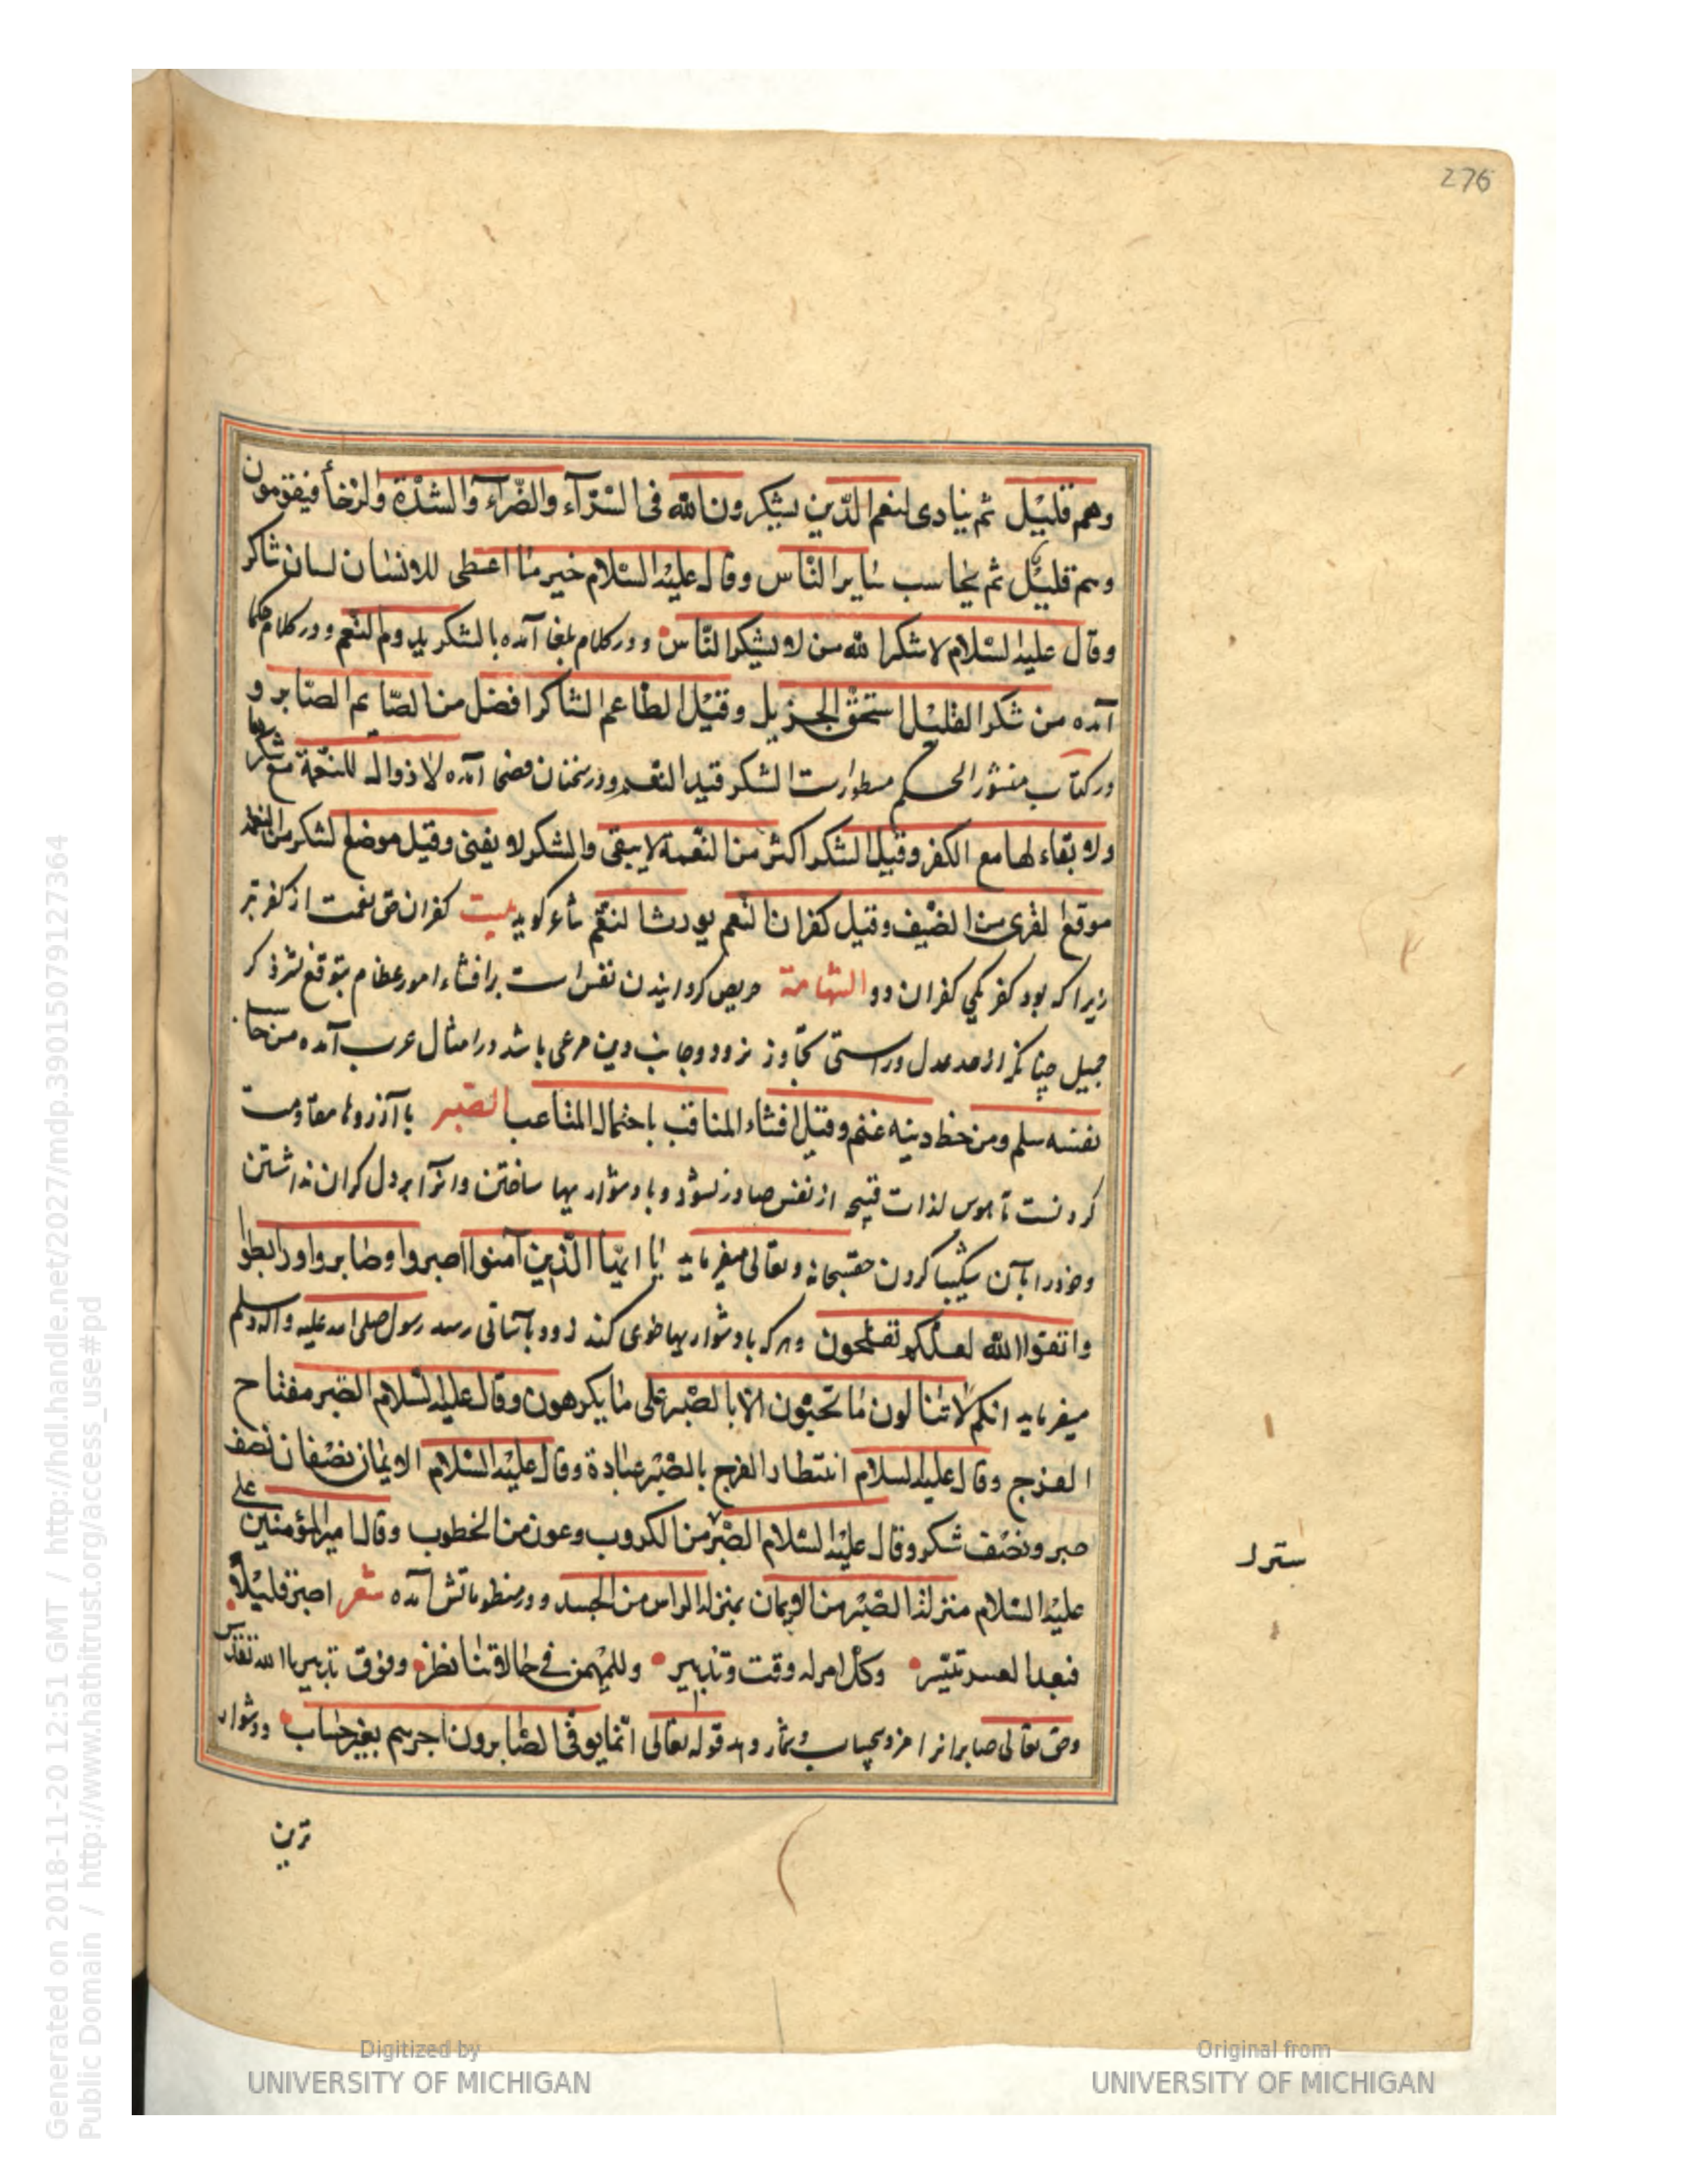 276
وهم قليل ثم ينادى انعم الذين يشكرون الله فى السرآء والضرآء والشدة والرخأ فيقومون
وهم قليل ثم يحاسب ساير الناس وقال عليه السلام خير ما اعطى للانسان لسان شاكر
وقال عليه السلام لا شكر الله من لا يشكر الناس ودر كلام بلغا آمده بالشكر يدوم النعم ودر كلام حكما
آمده من شكر القليل استحق الجزيل وقيل الطاعم الشاكر افضل من الصايم الصابر و
در كتاب منثور الحكم مسطور است الشكر قيد النعم ودر سخنان فصحا آمده لا زوال للنعمة مع شكرها
ولا بقاء لها مع الكفر وقيل الشكر اكثر من النعمة لا يبقى والشكر لا يفنى وقيل موضع الشكر من النعمة
موقع القرى من الضيف وقيل كفران النعم يورث النقم شاعر كويد بيت كفران حق نعمت از كفر بتر
زيرا كه بود كفر يكى كفران دو الشهامة حريص كردانيدن نفس است بر افشاء امور عظام بتوقع نشر ذكر
جميل چنانكه از حد عدل وراستى تجاوز نرود وجانب دين مرعى باشد در امثال عرب آمده من حاسب
نفسه سلم ومن حفظ دينه غنم وقيل افشاء المناقب باحتمال المتاعب الصبر با آرزوها مقاومت
كردنست تا هوس لذات قبيحه از نفس صادر نشود وبا دشواريها ساختن وانرا بر دل كران نداشتن
وخود را بآن شكيبا كردن حقسبحانه وتعالى ميفرمايد يا ايها الذين آمنوا اصبروا وصابروا ورابطوا
واتقوا الله لعلكم تفلحون وهركه با دشواريها خوى كند زود بآسانى رسد رسول صلى الله عليه واله وسلم
ميفرمايد انكم لا تنالون ما تحبون الا بالصبر على ما يكرهون وقال عليه السلام الصبر مفتاح
الفرج وقال عليه السلام انتظار الفرج بالصبر عبادة وقال عليه السلام الايمان نصفان نصف
صبر ونصف شكر وقال عليه السلام الصبر من الكروب وعون من الخطوب وقال امير المؤمنين على
ستر
عليه السلام منزلة الصبر من الايمان بمنزلة الراس من الجسد ودر منظوماتش آمده شعر اصبر قليلا
فبعد العسر تيسر وكل امر له وقت وتدبير وللمهيمن فى حالاتنا نظر وفوق تدبيرنا لله تقدير
وحق تعالى صابرانرا مزد بيحساب وشمار دهد قوله تعالى انما يوفى الصابرون اجرهم بغير حساب ودشوار
ترين
Generated on 2018-11-20 12:51 GMT / http://hdl.handle.net/2027/mdp.39015079127364
Public Domain / http://www.hathitrust.org/access_use#pd
Digitized by
UNIVERSITY OF MICHIGAN
Original from
UNIVERSITY OF MICHIGAN